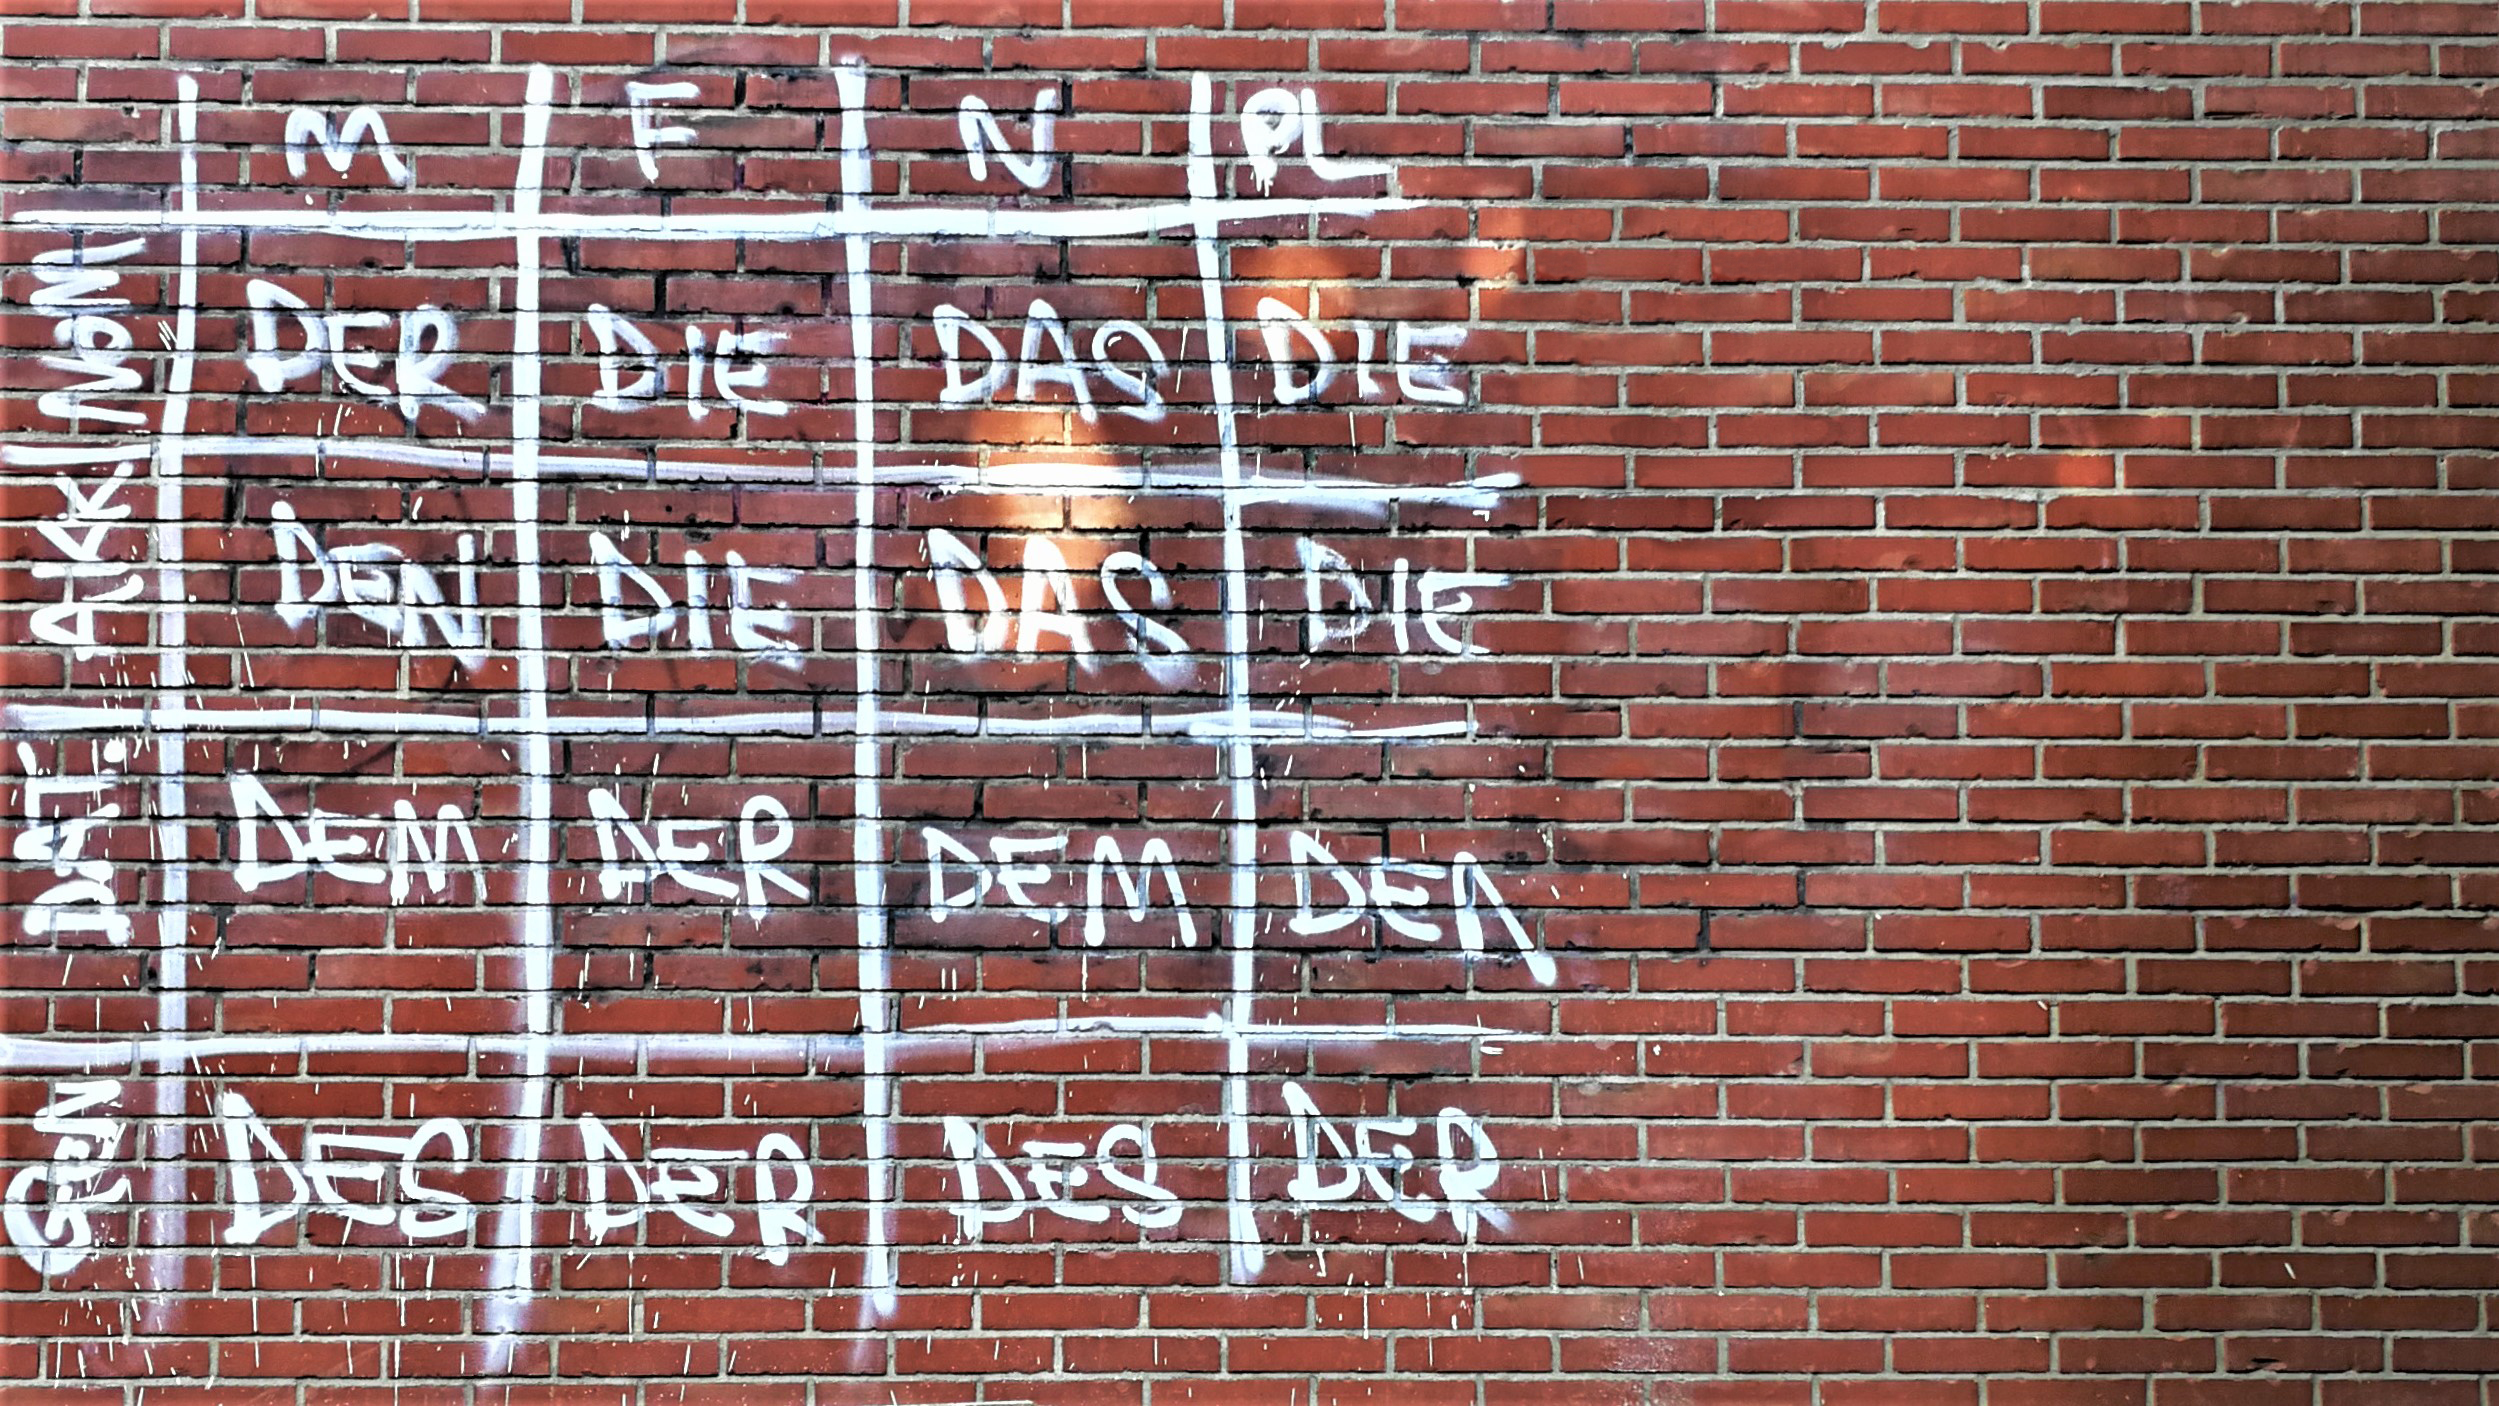 M F N PL
NOM DER DIE DAS DIE
AKK DEN DIE DAS DIE
DAT. DEM DER DEM DEN
GEN DES DER DES DER